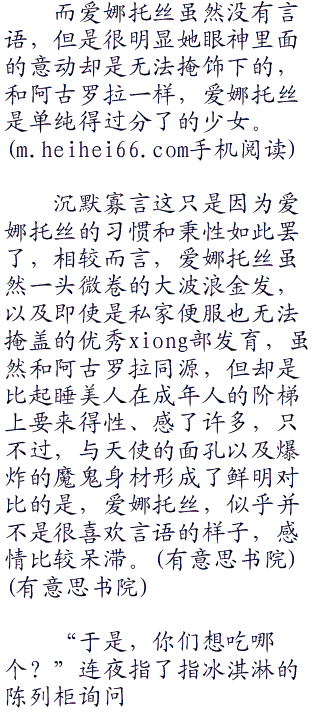 而爱娜托丝虽然没有言
语，但是很明显她眼神里面
的意动却是无法掩饰下的，
和阿古罗拉一样，爱娜托丝
是单纯得过分了的少女。
(m.heihei66.com手机阅读)
沉默寡言这只是因为爱
娜托丝的习惯和秉性如此罢
了，相较而言，爱娜托丝虽
然一头微卷的大波浪金发，
以及即使是私家便服也无法
掩盖的优秀xiong部发育，虽
然和阿古罗拉同源，但却是
比起睡美人在成年人的阶梯
上要来得性、感了许多，只
不过，与天使的面孔以及爆
炸的魔鬼身材形成了鲜明对
比的是，爱娜托丝，似乎并
不是很喜欢言语的样子，感
情比较呆滞。(有意思书院)
(有意思书院)
“于是，你们想吃哪
个？”连夜指了指冰淇淋的
陈列柜询问